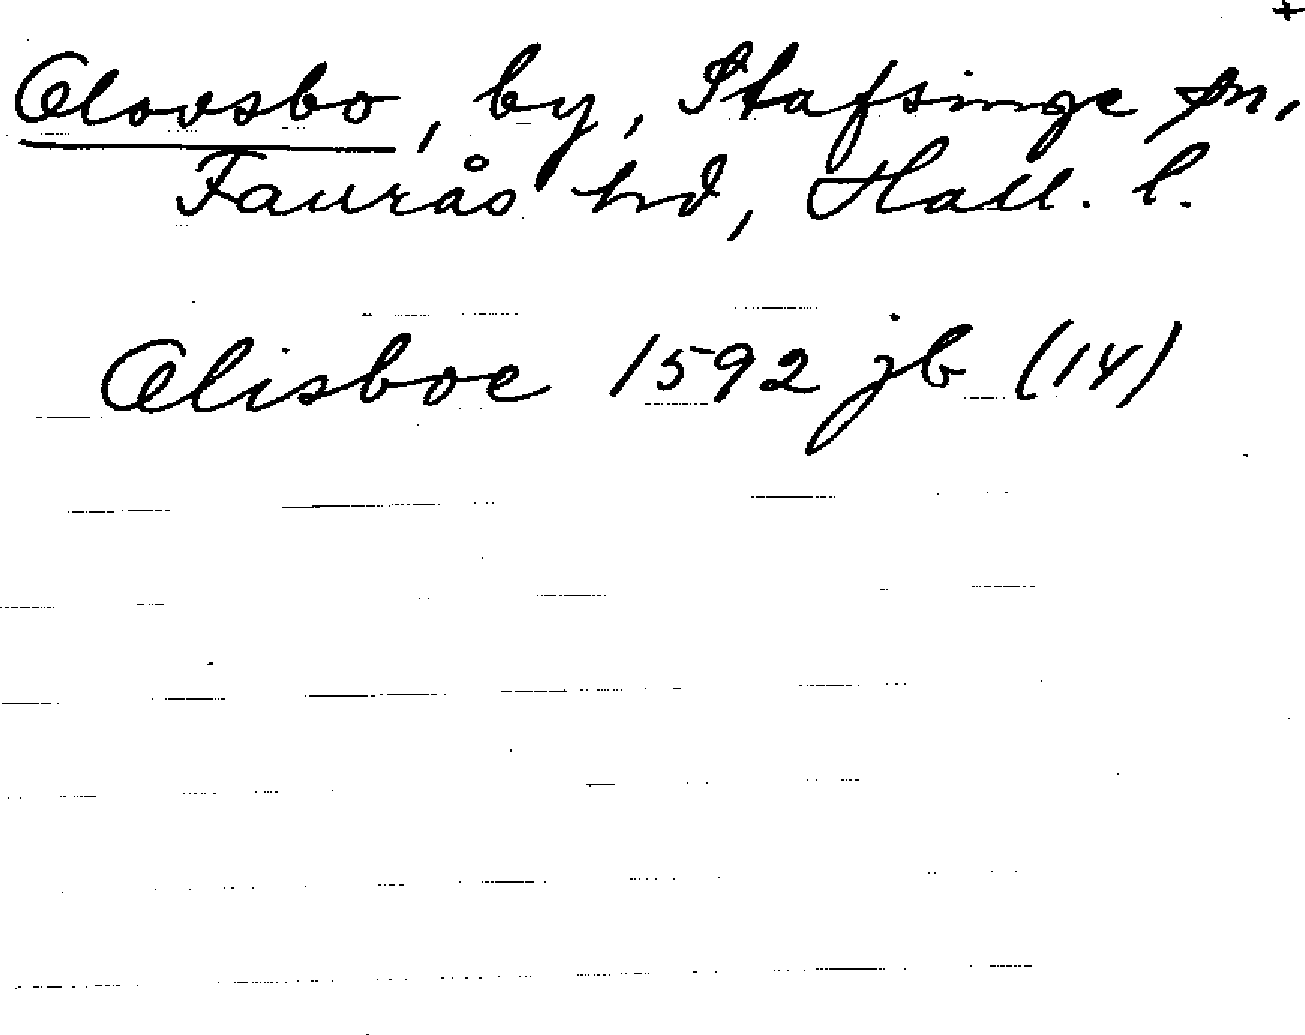 +
Olovsbo, by, Stafsinge sn,
Faurås hd, Hall. l.
Olisboe 1592 jb (14)